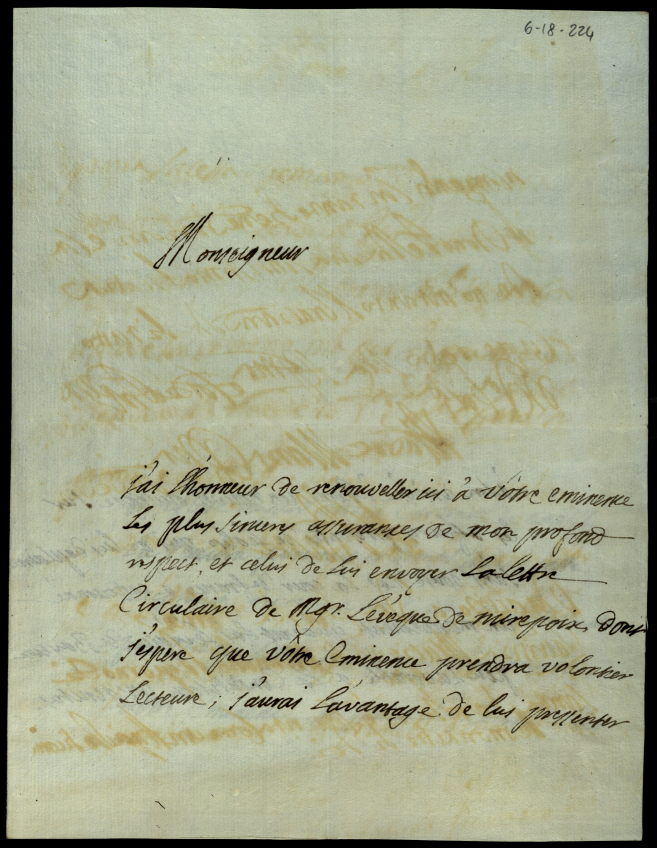 6-18-224
Monseigneur
j'ai l'honneur de renouveller ici à Votre eminence
les plus sinceres assurances de mon profond
respect, et celui de lui envoyer la lettre
Circulaire de Mgr. L'evêque de mirepoix, dont
j'espere que vôtre Eminence prendra volontier
Lecteure; j'aurai l'avantage de lui presenter